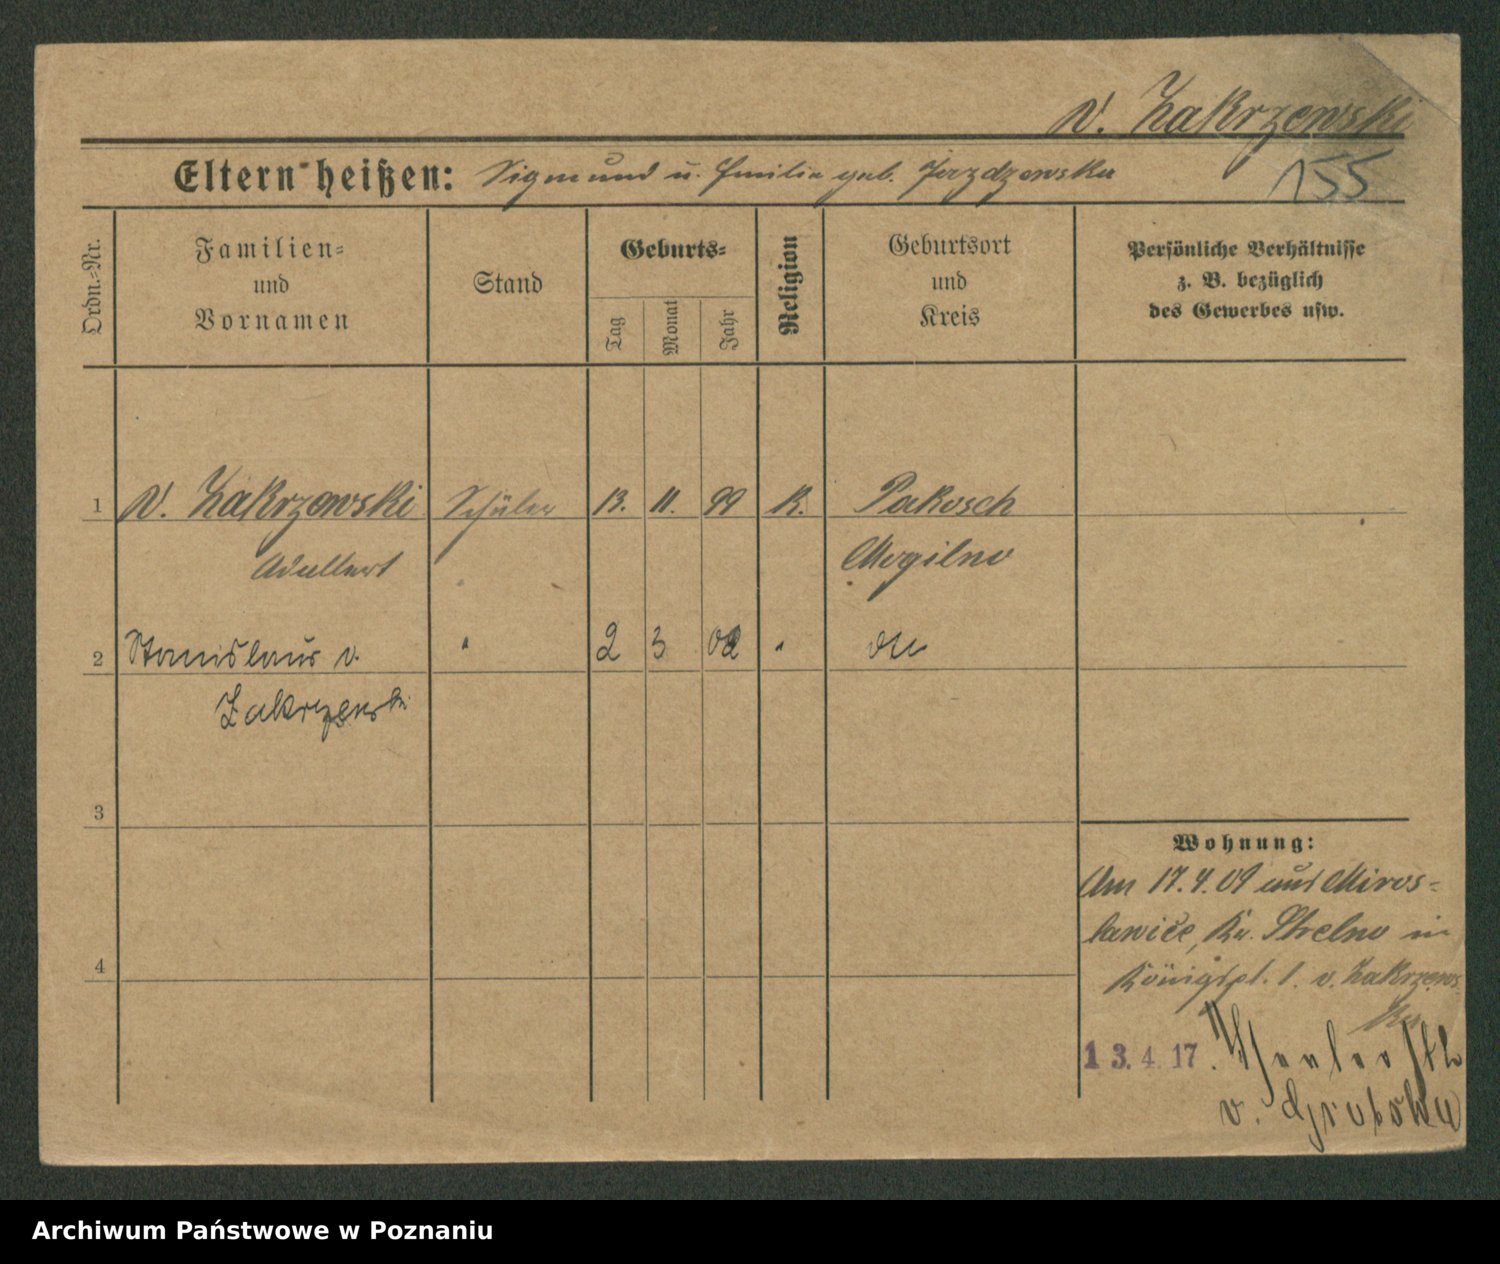 v. Zakrzewski
155
Eltern heißen: Sigmund u. Emilia geb. Jerzdzewska
Ordn.-Nr.
Familien-
und
Vornamen
Stand
Geburts-
Tag
Monat
Jahr
Religion
Geburtsort
und
Kreis
Persönliche Verhältnisse
z. B. bezüglich
des Gewerbes usw.
1 v. Zakrzewski Schüler 13. 11. 99 K. Pakosch
Adalbert Mogilno
2 Stanislaus v. " 2 3 02 "
Zakrzewski
3
4
Wohnung:
Am 17.4.09 aus Miros-
lawice, Kr. Strelno in
Königspl. 1. v. Zakrzews
ka
13.4.17.
v. Grabska
Archiwum Państwowe w Poznaniu